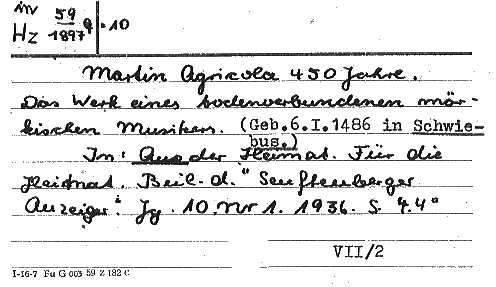 in
Hz 59/1897 q : 10
Martin Agricola 450 Jahre.
Das Werk eines bodenverbundenen mär-
kischen Musikers. (Geb.6.I.1486 in Schwie-
bus.)
In: Aus der Heimat. Für die
Heimat. Beil. d. "Senftenberger
Anzeiger". Jg. 10. Nr 1. 1936. S. 4. 4°
VII/2
I-16-7 Fu G 003 59 Z 182 C